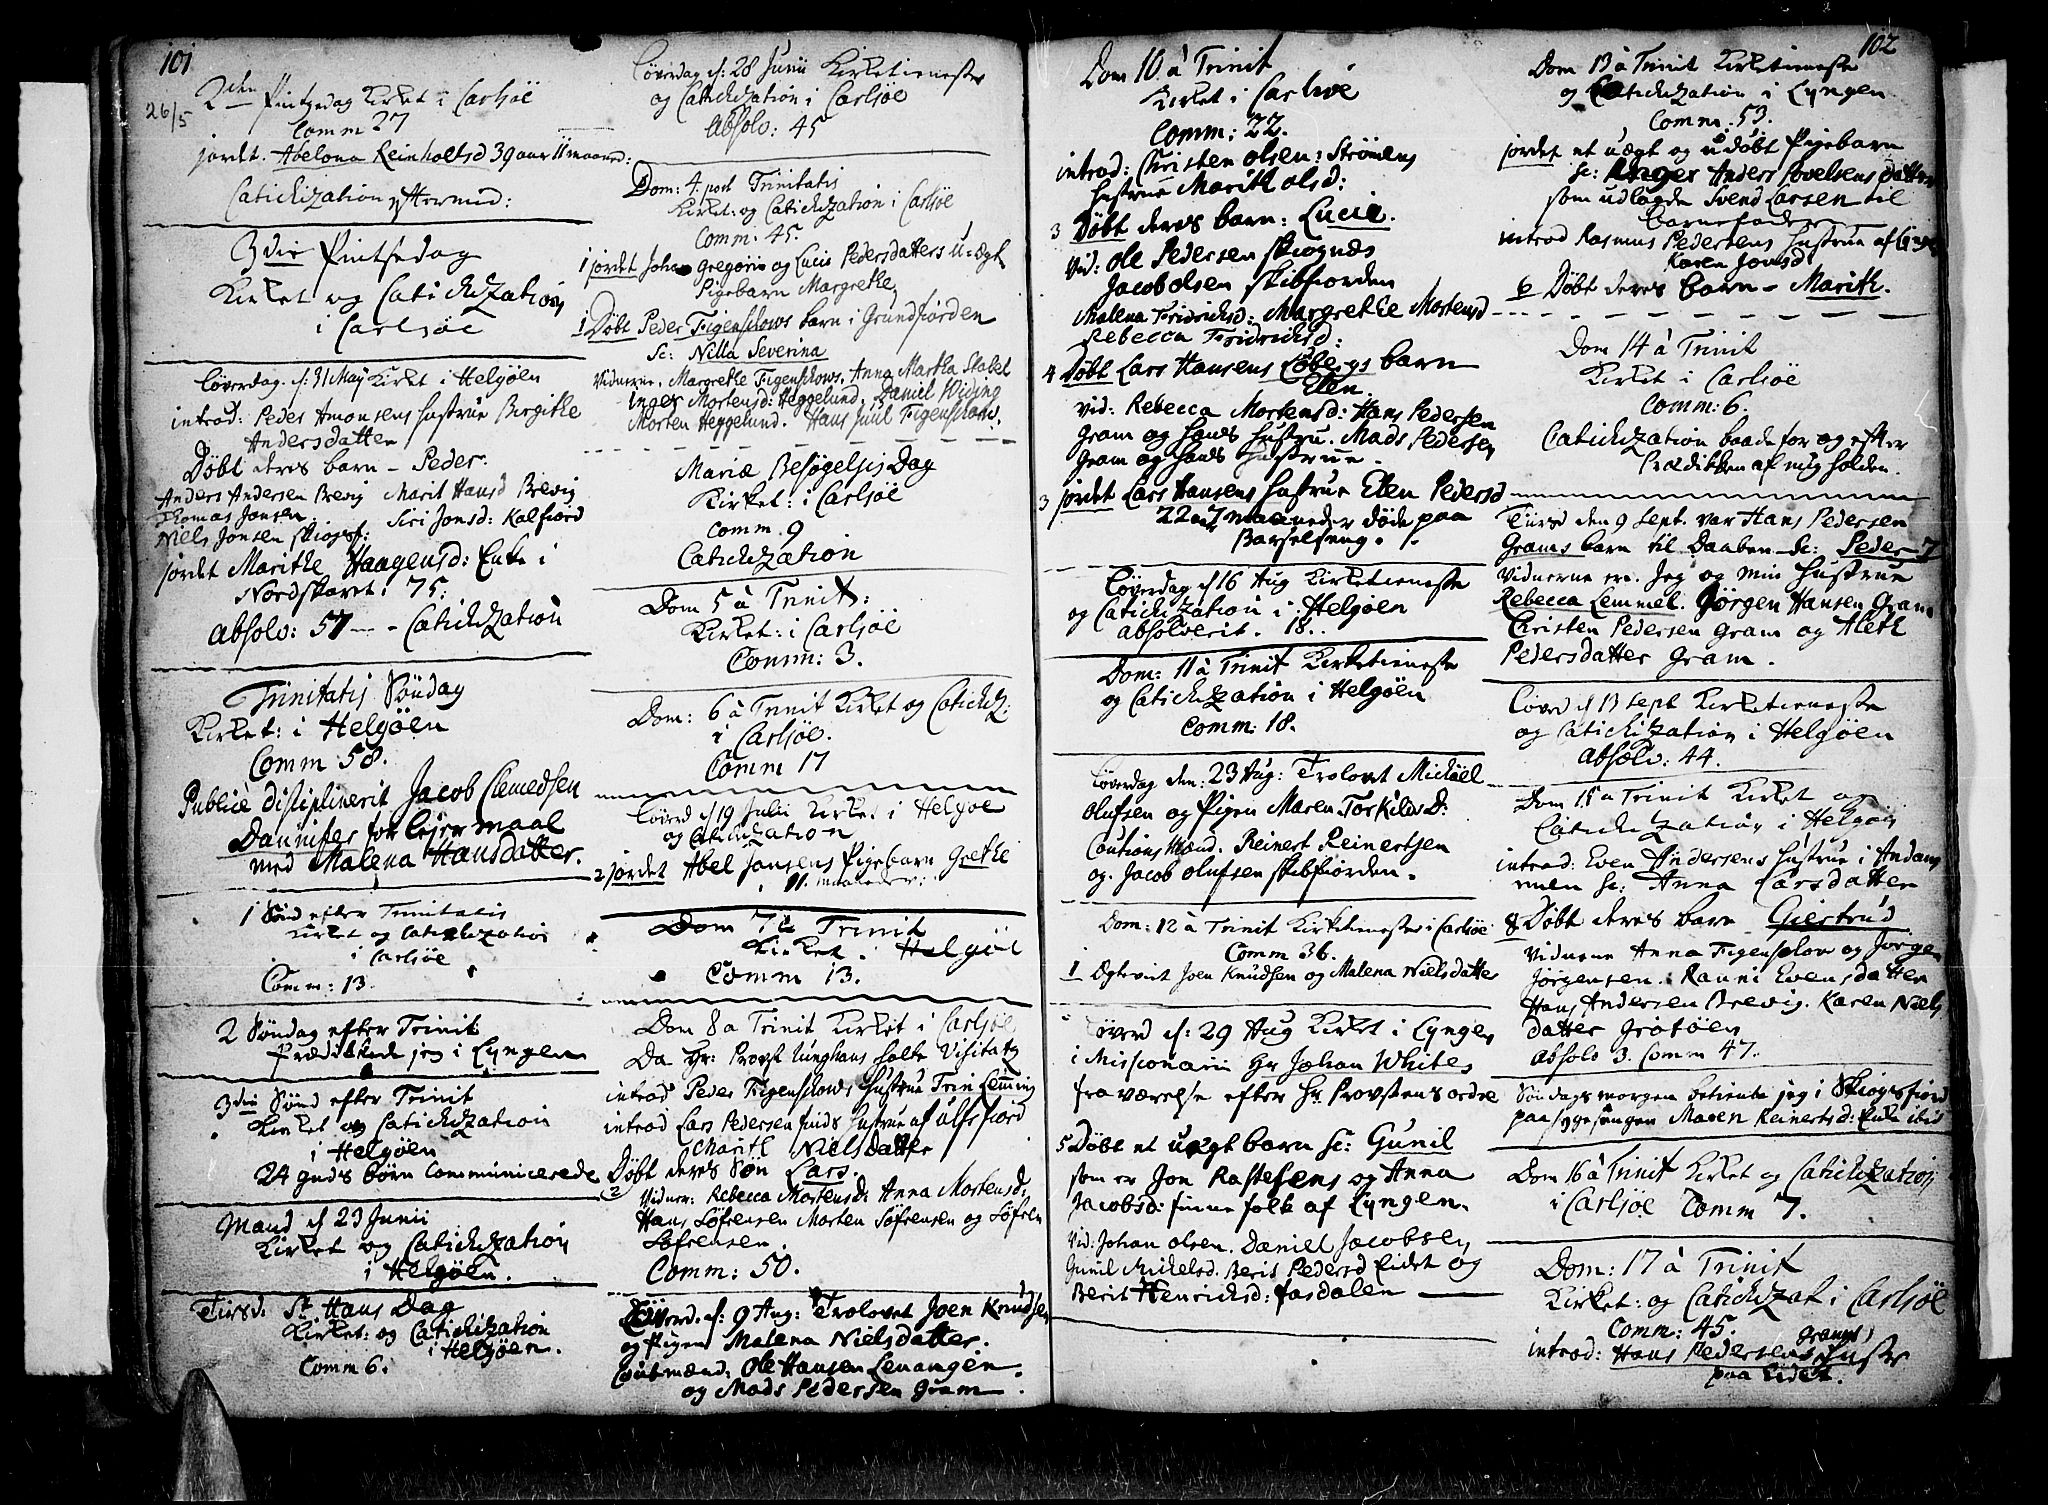 101
26/5
2den Pintzedag Kirket i Carlsøe
Comm 27
jordet. Abelona Reinholtsd 39 aar 11 maaned:
Catichization efftermid:
3die Pintsedag
Kirket og Catichization
i Carlsøe
Løverdag d: 31 May Kirket i Helgøen
introd: Peder Amonsens hustrue Birgitke
Andersdatter
Døbt deres barn - Peder.
Anders Andersen Brevig Marit Hansd Brevig
Thomas Jonsen Siri Jonsd: Kalfiord
Niels Jonsen Skiogsf:
jordet Marithe Haagensd: Enke i
Nordskaret: 75.
Absolv: 57 --- Catichization
Trinitatis Søndag
Kirket: i Helgøen
Comm 58.
Publicè disciplinerit Jacob Clemedsen
Dannifer for lejermaal
med Malena Hansdatter.
1 Sønd efter Trinitatis
Kirket og Catichization
i Carlsøe
Comm: 13.
2 Søndag efter Trinit
Prædikede jeg i Lyngen
3die Sønd efter Trinit
Kirket og Catichization
i Helgøen
24 guds børn Communicerede
Mand d 23 Junii
Kirket og Catichization
i Helgøen.
Tirsd: St Hans Dag
Kirket: og Catichization
i Helgøen.
Comm 6.
Løverdag d: 28 Junii Kirketieneste
og Catichization i Carlsøe
Absolv: 45
Dom: 4 post Trinitatis
Kirket: og Catichization i Carlsøe
Comm: 45.
1 jordet Johan Gregorii og Lucie Pedersdatters u-ægt
Pigebarn Margrethe,
1 Døbt Peder Figenschows barn i Grundfiorden
Sc: Nilla Severina
Vidnerne, Margrethe Figenschows, Anna Martha Stabel
Inger Mortensd: Heggelund, Daniel Widing
Morten Heggelund. Hans Juul Figenschow.
Mariæ Besøgelsis Dag
Kirket: i Carlsøe
Comm. 9
Catichization
Dom 5 à Trinit:
Kirket: i Carlsøe
Comm: 3.
Dom: 6 à Trinit Kirket og Catichiz:
i Carlsøe.
Comm 17
Løverd d 19 Julii Kirket i Helgøe
og Catichization
2 jordet Abel Jonsens Pigebarn Grethe
11. maaneder:
Dom 7 à Trinit
Kirket i Helgøe
Comm 13.
Dom 8 a Trinit Kirket i Carlsøe
Da Hr: Provst Junghans holte Visitatz
introd Peder Figenschows hustrue Trin Leming
introd Lars Pedersen finds hustrue af Ulfsfiord
Marith Nielsdatter
2 Døbt deres Søn Lars.
Vidner: Rebecca Mortensd: Anna Mortensd:
Hans Søfrensen Morten Søfrensen og Søfren
Søfrensen.
Comm: 50.
Løverd. d: 9 Aug: Trolovet Joen Knudsen
og Pigen Malena Nielsdatter.
Cautmænd: Ole Hansen Levangen
og Mads Pedersen Gram.
Dom 10 à Trinit
Kirket i Carlsøe
Comm: 22.
introd: Christen Olsen: Strømens
hustrue Marith Olsd:
3 Døbt deres barn: Lucie.
Vid: Ole Pedersen Skiognæs
Jacob Olsen Skibfiorden
Malena Fridrichsd: Margrethe Mortensd
Rebecca Fridrichsd:
4 Døbt Lars Hansens Løbergs barn
Elen.
Vid: Rebecca Mortensd: Hans Pedersen
Gram og hans hustru. Mads Pedersen
Gram og hans hustrue.
3 jordet Lars Hansens hustrue Elen Pedersd
22 aar 7 maaneder døde paa
Barselseng.
Løverdag d 16 Aug Kirketieneste
og Catichization i Helgøen
absolverit. 18.
Dom: 11 à Trinit Kirketieneste
og Catichization i Helgøen
Comm: 18.
Løverdag den: 23 Aug: Trolovet Michael
Olufsen og Pigen Maren Torkilds D:
Cautions Mænd. Reinert Reinertsen
og. Jacob Olufsen Skibfiorden.
Dom: 12 à Trinit Kirketieneste i Carlsøe
Comm 36.
1 Egteviet Joen Knudsen og Malena Nielsdatter
Løverd d: 29 Aug Kirket i Lyngen
i Missionarii Hr Johan Whites
fraværelse efter Hr Provstens ordre
5 Døbt et uægt barn Sc: Gunil
som er Jon Rastesens og Anna
Jacobsd: finne folk af Lyngen.
Vid: Johan Olsen. Daniel Jacobsen,
Gunil Mickelsd. Beris Pedersd Eidet og
Berit Henrichsd: Jasdalen
102
Dom 13 à Trinit Kirketieneste
og Catichization i Lyngen
Comm: 53.
jordet et uægt og udøbt Pigebarn
Sc: Inger Anders Povelsens datter
som udlagde Svend Larsen til
barnefader
introd Rasmus Pedersens hustrue af Lyngen
Karen Jonsd:
6 Døbt deres barn - Marith.
Dom 14 à Trinit
Kirket i Carlsøe
Comm: 6.
Catichization baade for og efter
Prædikken af mig holden.
Tiirsd den 9 Sept. var Hans Pedersen
Grams barn til Daaben - Sc: Peder 7
Vidnerne ere. Jeg og min hustrue
Rebecca Lemmel. Jørgen Hansen Gram
Christen Pedersen Gram og Aleth
Pedersdatter Gram.
Løverd d 13 Sept Kirketieneste
og Catichization i Helgøen
Absolv: 44.
Dom 15 a Trinit Kirket og
Catichization i Helgøen
introd: Even Andersens hustrue i Andam
Sc: Anna Larsdatter
8 Døbt deres barn Giertrud
Vidnerne Anna Figenschov og Jørgen
Jørgensen. Ranni Evensdatter
Hans Andersen Brevig. Karen Niels
datter Grøtøen
Absolv 3. Comm 47.
Søndags morgen betiente jeg i Skiogsfiord
paa sygesengen Maren Reinertsd: Enke ibid
Dom 16 à Trinit Kirket og Catichization
i Carlsøe Comm 7.
Dom: 17 à Trinit
Kirket: og Catichizat i Carlsøe
Comm: 45.
introd: Hans Pedersens (Grams) Hustr
paa Eidet.